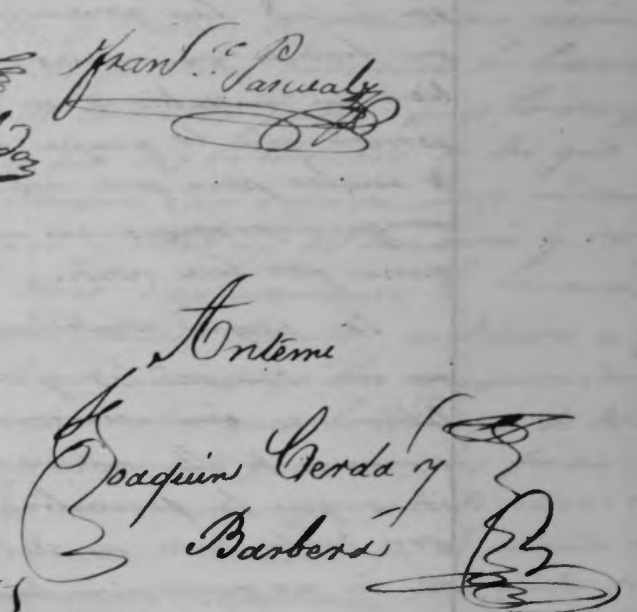 Fran.co Pascual
Antemi
Joaquin Cerdá y
Barberá